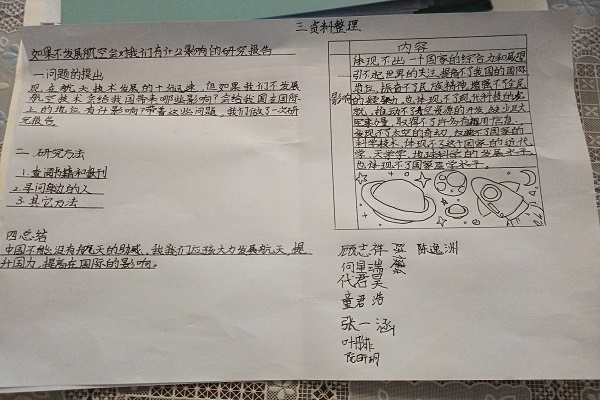 如果不发展航空会对我们有什么影响的研究报告
一 问题的提出
现在航天技术发展的十分迅速,但如果我们不发展
航空技术会给我国带来哪些影响?会给我国在国际
上的地位有什影响?带着这些问题,我们做了一次研
究报告。
二 研究方法
1.查阅书籍和报刊
2.寻问身边的人
3.其它方法
四总结
中国不能没有航天的助威,我们应该大力发展航天,提
升国力,提高在国际的影响。
三 资料整理
内容
影响
体现不出一个国家的综合力和威望
引不起世界的关注,提高不了我国的国际
地位,振奋不了民族精神,增强不了全民
也体现不了现代科技的成
就,推动不了太空资源的开发,缺少强大
军事力量,取得不了许多有趣用信息,
发现不了太空的奇幻,反映不了国家的
科学技术,体现不了这个国家的近代
学,天学学,地球科学的发展水平
也体现不了国家医学水平。
顾志祥 陈逸洲
何星瑞
代君昊
童君浩
张一涵
叶